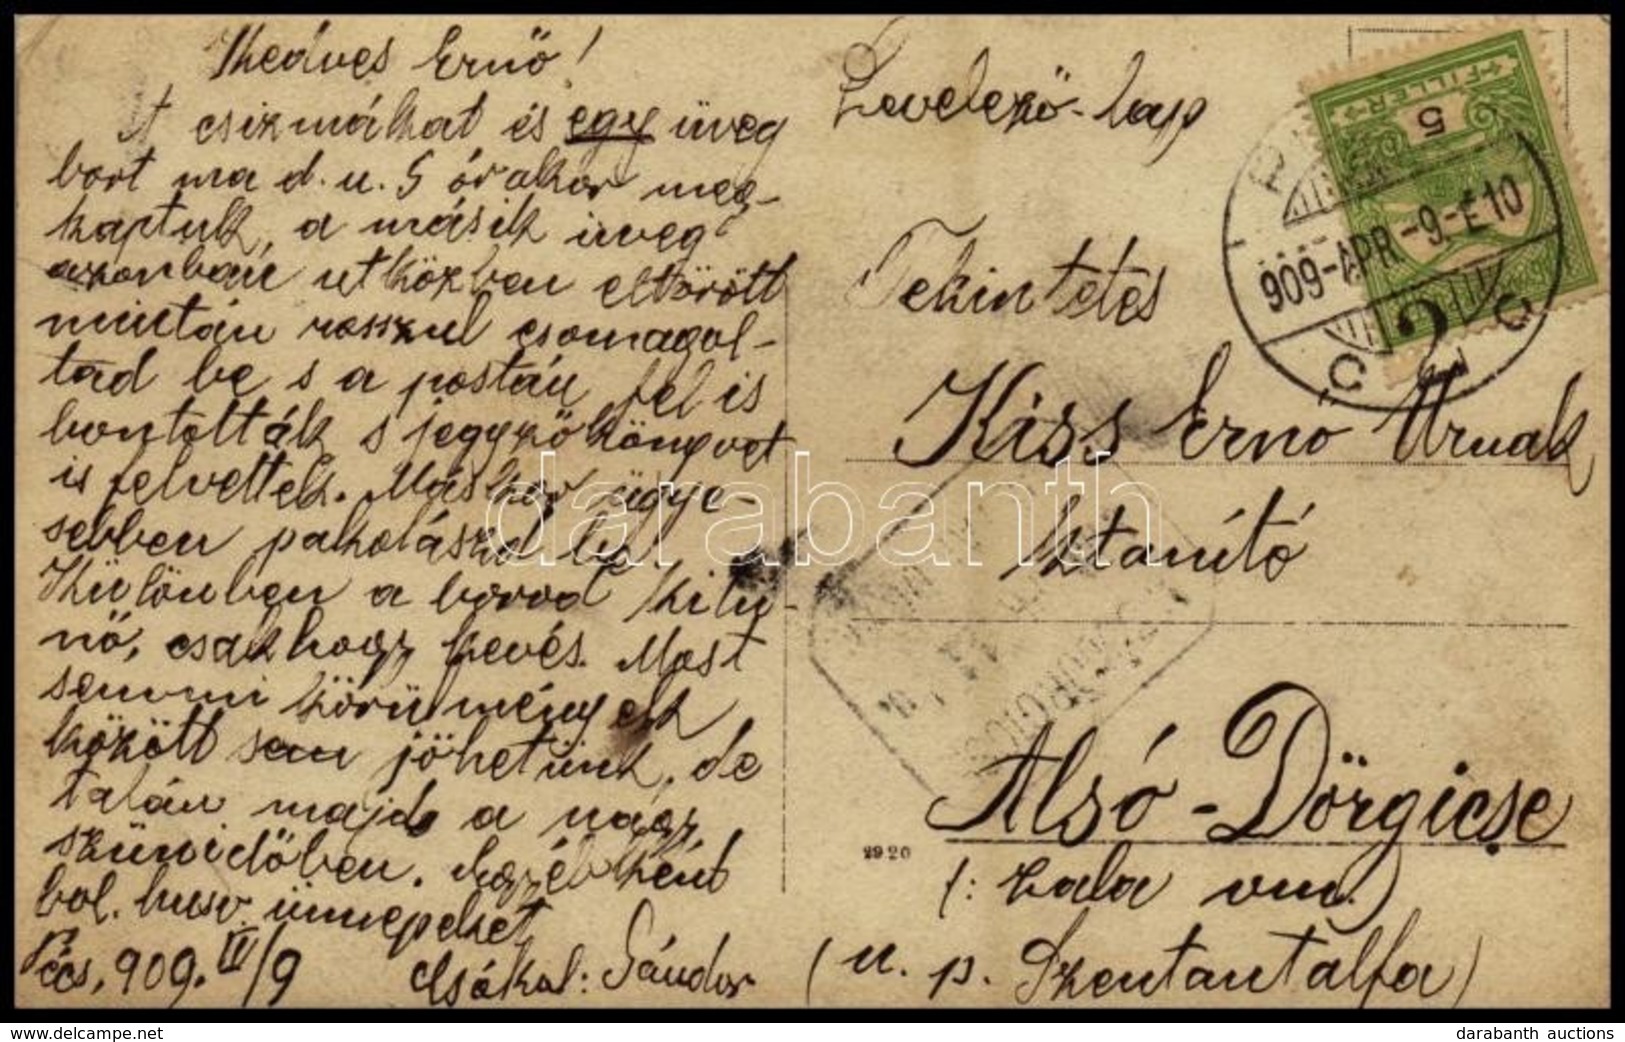 Kedves Ernő!
A csizmákat és egy üveg
bort ma d. u. 5 órakor meg-
kaptuk, a másik üveg
azonban útközben eltörött
miután rosszul csomagol-
tad be s a postán fel is
bontották s jegyzőkönyvet
is felvettek. Máskor ügye-
sebben pakolászd be!
Különben a borod kitü-
nő, csakhogy kevés. Most
semmi körülmények
között sem jöhetünk, de
talán majd a nagy
szünidőben. Egyébként
bol. husv. ünnepeket
Pécs, 909. IV/9
Csókol: Sándor
Levelező-lap
FILLÉR
5
909-APR-9-E10
2
Tekintetes
Kiss Ernő Urnak
tanító
Alsó-Dörgicse
2920
(: Zala vm.)
(u. p. Szentantalfa)
darabanth
delcampe.net
darabanth auctions